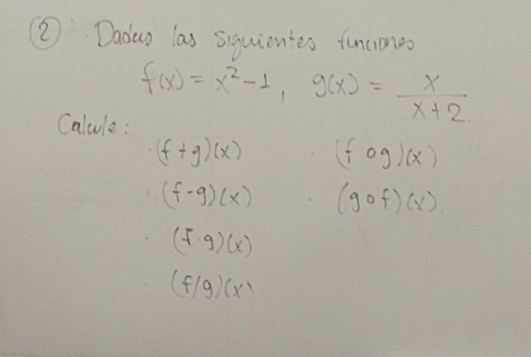 ② Dadas las siguientes funciones
f(x) = x² - 1, g(x) = x / (x + 2)
Calcule:
· (f + g)(x) · (f o g)(x)
· (f - g)(x) · (g o f)(x).
· (f · g)(x)
· (f/g)(x)